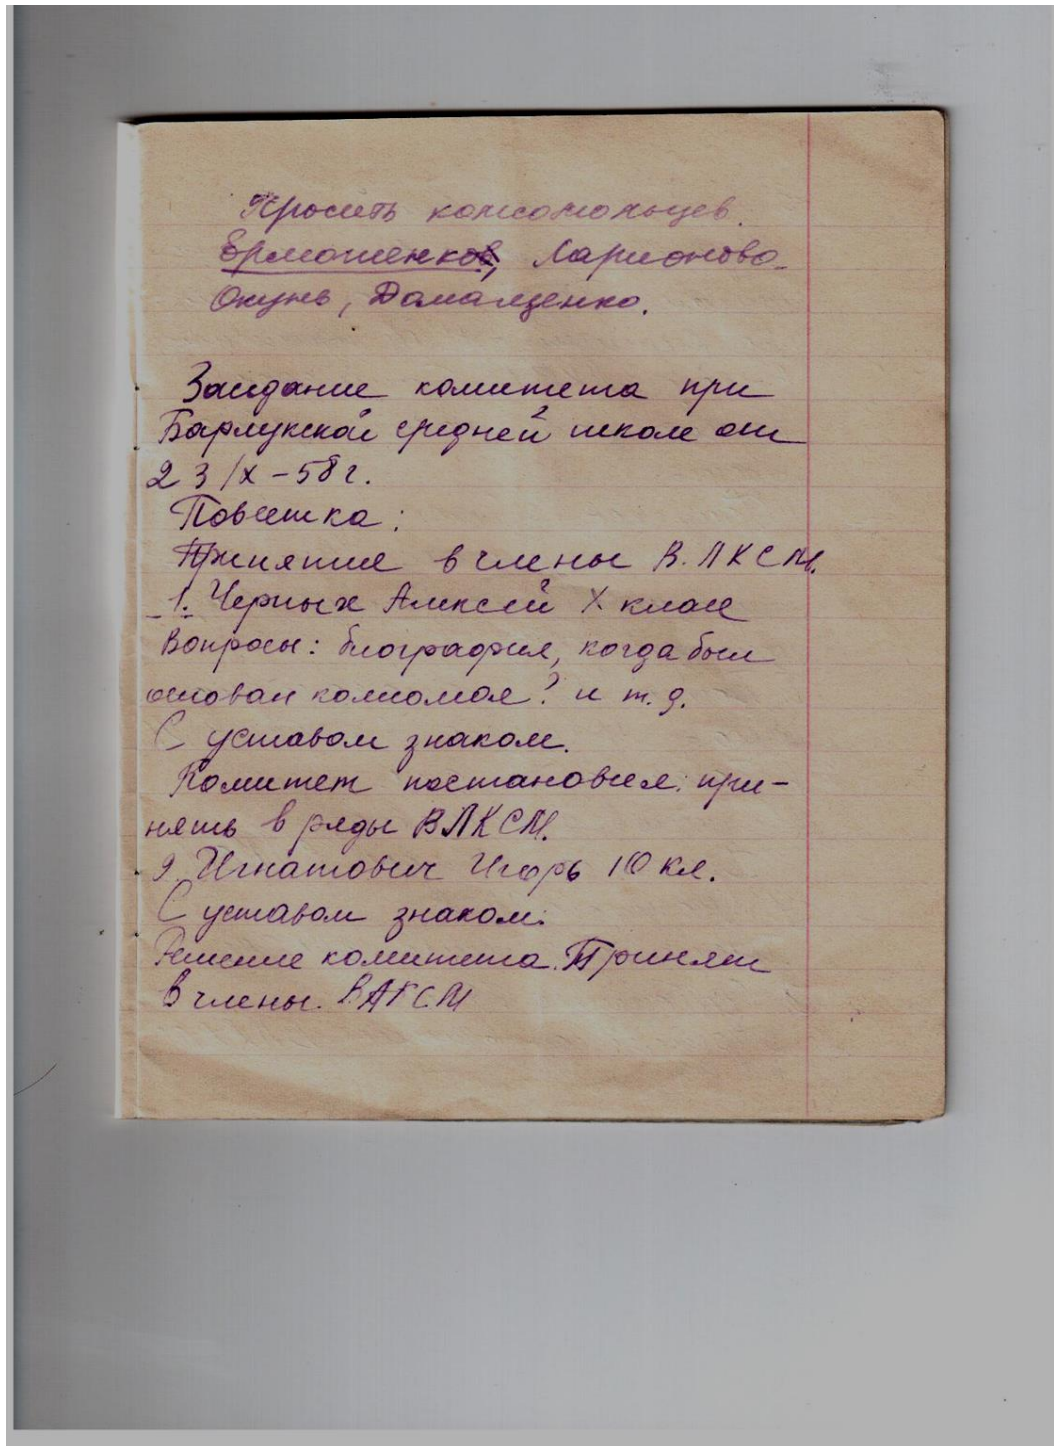 Просить комсомольцев.
Ермошенко, Ларионова
Окунь, Домащенко.
Заседание комитета при
Барлукской средней школе от
23/X-58 г.
Повестка:
Принятие в члены В.ЛКСМ.
1. Черных Алексей X класс
Вопросы: биография, когда был
основан комсомол? и т.д.
С уставом знаком.
Комитет постановил: при-
нять в ряды ВЛКСМ.
2. Игнатович Игорь 10 кл.
С уставом знаком.
Решение комитета. Принят
в члены. ВЛКСМ